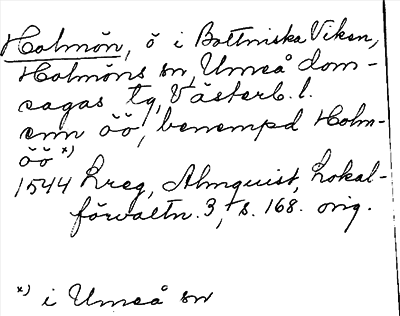 Holmön, ö i Bottniska Viken,
Holmöns sn, Umeå dom-
sagas tg, Västerb. l.
enn öö, benempd Holm-
öö x)
1544 Lreg, Almquist, Lokal-
förvaltn. 3, s. 168. orig.
x) i Umeå sn